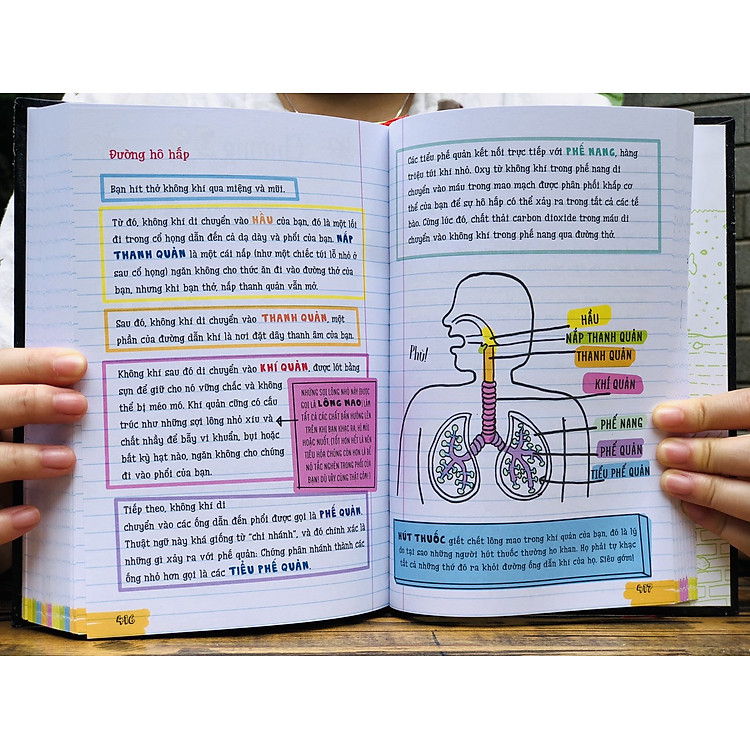 Đường hô hấp
Bạn hít thở không khí qua miệng và mũi.
Từ đó, không khí di chuyển vào HẦU của bạn, đó là một lối
đi trong cổ họng dẫn đến cả dạ dày và phổi của bạn. NẮP
THANH QUẢN là một cái nắp (như một chiếc túi lỗ nhỏ ở
sau cổ họng) ngăn không cho thức ăn đi vào đường thở của
bạn, nhưng khi bạn thở, nắp thanh quản vẫn mở.
Sau đó, không khí di chuyển vào THANH QUẢN, một
phần của đường dẫn khí là nơi đặt dây thanh âm của bạn.
Không khí sau đó di chuyển đến KHÍ QUẢN, được lót bằng
sụn để giữ cho nó vững chắc và không
thể bị méo mó. Khí quản cũng có cấu
trúc như những sợi lông nhỏ xíu và
chất nhầy để bẫy vi khuẩn, bụi hoặc
bất kỳ hạt nào, ngăn không cho chúng
đi vào phổi của bạn.
NHỮNG SỢI LÔNG NHỎ NÀY ĐƯỢC
GỌI LÀ LÔNG MAO) LÀM
TẤT CẢ CÁC CHẤT BẨN HƯỚNG LÊN
TRÊN KHI BẠN KHẠC RA, HỈ MŨI,
HOẶC NUỐT. (TỐT HƠN HẾT LÀ NÊN
TIÊU HÓA CHÚNG CÒN HƠN LÀ ĐỂ
NÓ TẮC NGHẼN TRONG PHỔI CỦA
BẠN! DÙ VẬY CŨNG THẬT GỚM!)
Tiếp theo, không khí di
chuyển vào các ống dẫn đến phổi được gọi là PHẾ QUẢN.
Thuật ngữ này khá giống từ "chi nhánh", và đó chính xác là
những gì xảy ra với phế quản: Chúng phân nhánh thành các
ống nhỏ hơn gọi là các TIỂU PHẾ QUẢN.
416
Các tiểu phế quản kết nối trực tiếp với PHẾ NANG, hàng
triệu túi khí nhỏ. Oxy từ không khí trong phế nang di
chuyển vào máu trong mao mạch được phân phối khắp cơ
thể của bạn để sự hô hấp có thể xảy ra trong tất cả các tế
bào. Cùng lúc đó, chất thải carbon dioxide trong máu di
chuyển vào không khí trong phế nang qua đường thở.
Phù!
HẦU
NẮP THANH QUẢN
THANH QUẢN
KHÍ QUẢN
PHẾ NANG
PHẾ QUẢN
TIỂU PHẾ QUẢN
HÚT THUỐC giết chết lông mao trong khí quản của bạn, đó là lý
do tại sao những người hút thuốc thường ho khan. Họ phải tự khạc
tất cả những thứ đó ra khỏi đường ống dẫn khí của họ. Siêu gớm!
417